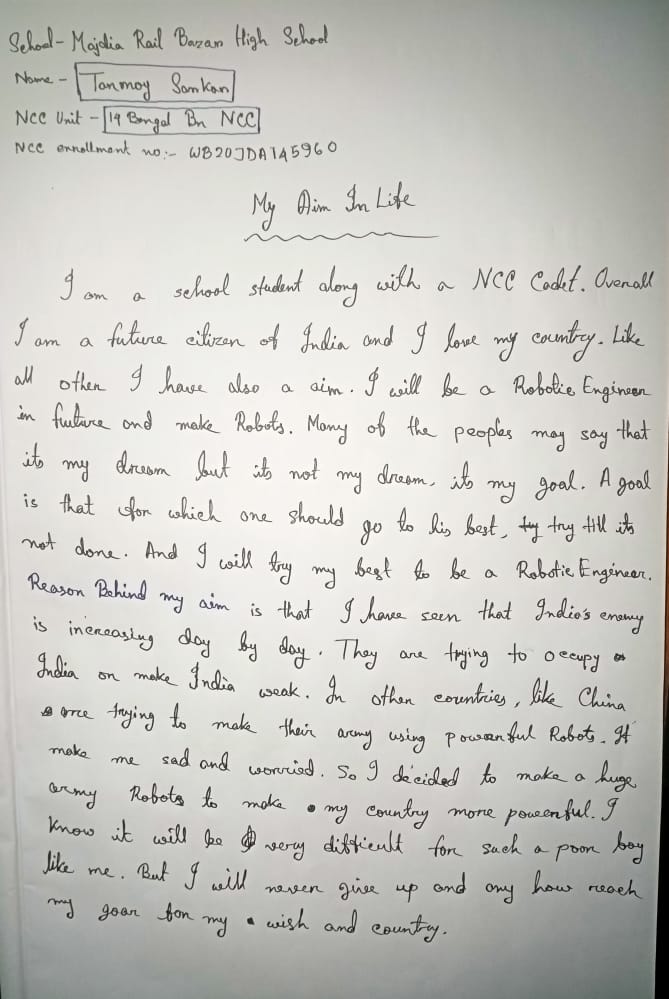 School- Majdia Rail Bazar High School
Name - Tanmoy Sarkar
NCC Unit - 19 Bengal Bn NCC
NCC enrollment no:- WB20JDA145960
My Aim In Life
I am a school student along with a NCC Cadet. Overall
I am a future citizen of India and I love my country. Like
all other I have also a aim. I will be a Robotic Engineer
in future and make Robots. Many of the peoples may say that
its my dream but its not my dream, its my goal. A goal
is that for which one should go to his best, try till its
not done. And I will try my best to be a Robotic Engineer.
Reason Behind my aim is that I have seen that India's enemy
is increasing day by day. They are trying to occupy
India or make India weak. In other countries, like China
are trying to make their army using powerful Robots. It
make me sad and worried. So I decided to make a huge
army Robots to make my country more powerful. I
know it will be very difficult for such a poor boy
like me. But I will never give up and any how reach
my goar for my wish and country.